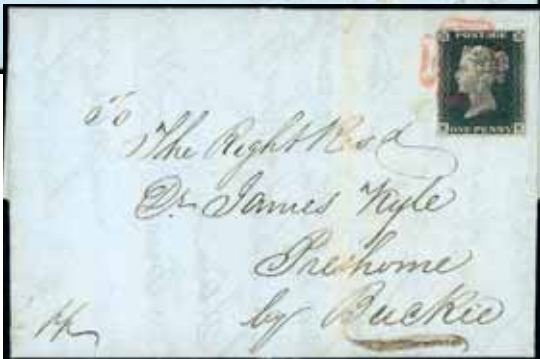 POSTAGE
ONE PENNY
To
The Right Revd
Dr James Kyle
Preshome
by Buckie